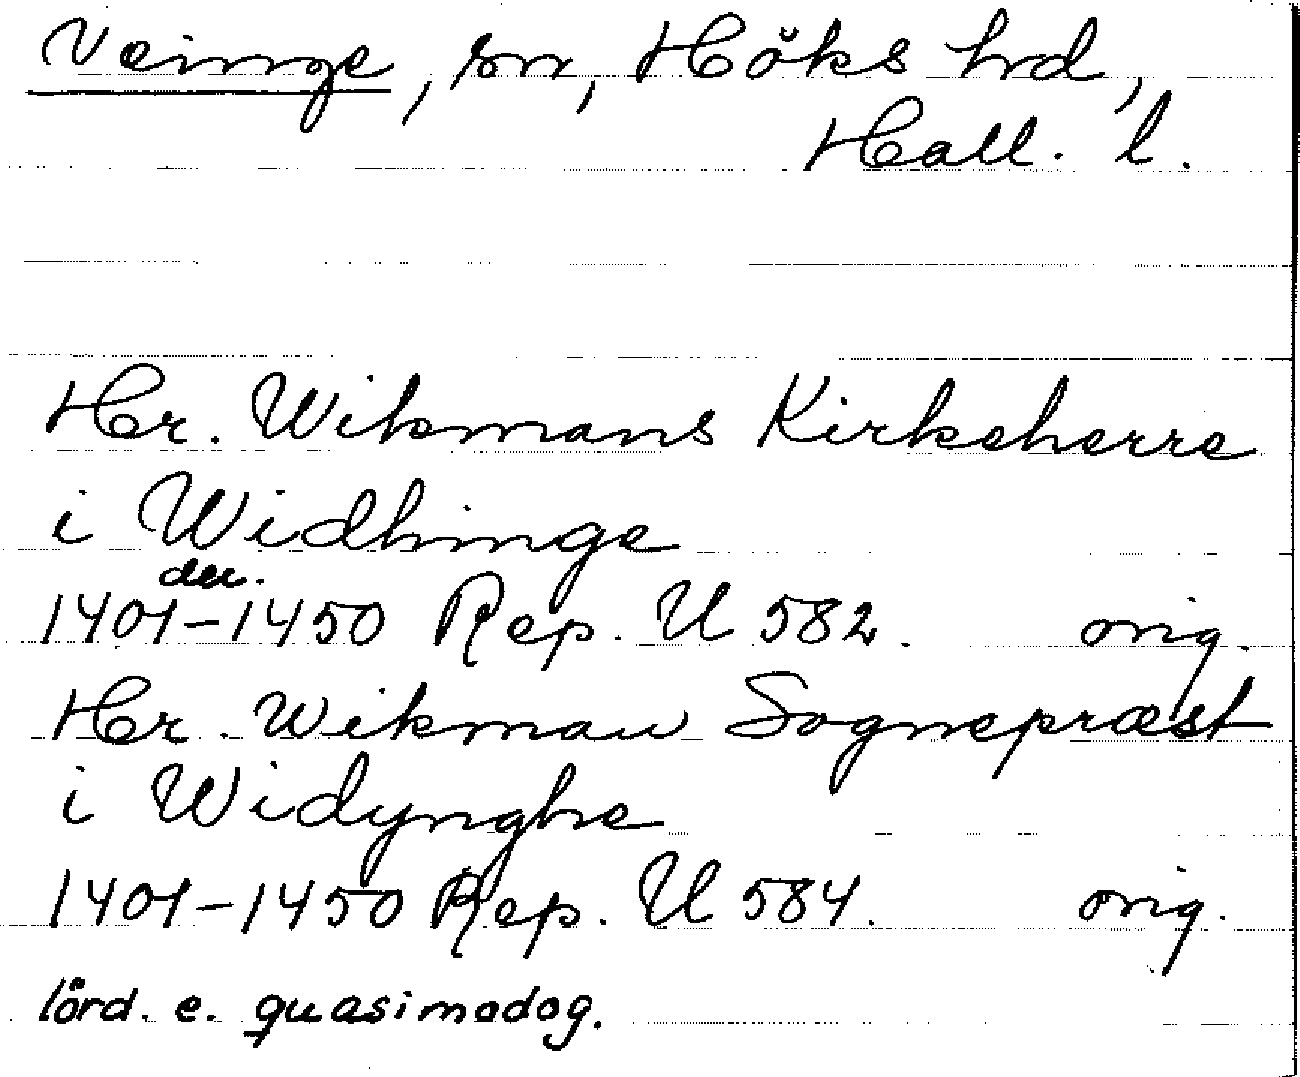 Veinge, sn, Höks hrd,
Hall. l.
Hr. Wikmans Kirkeherre
i Widhinge
dec.
1401-1450 Rep. U 582. orig.
Hr. Wikman Sognepræst
i Widynghe
1401-1450 Rep. U 584. orig.
lörd. e. quasimodog.